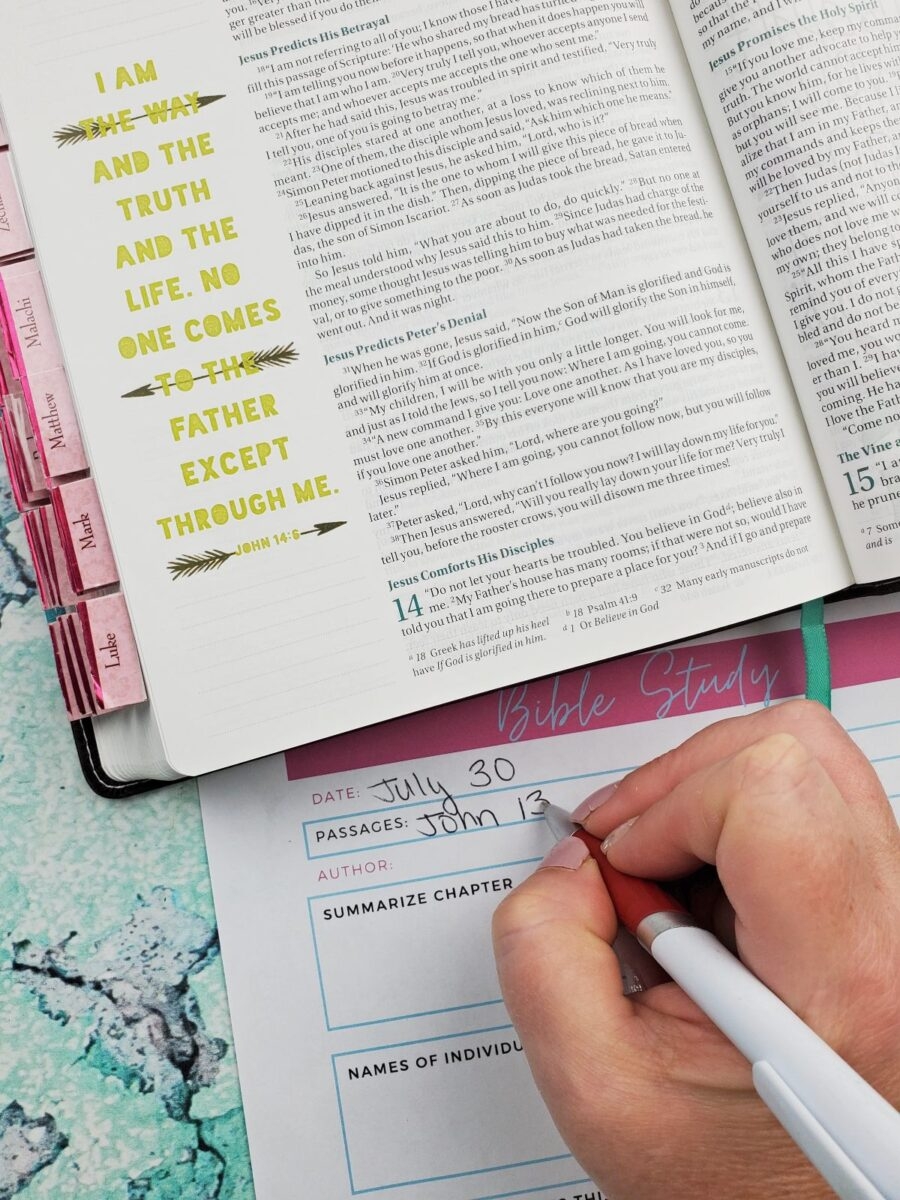 ger greater than the
will be blessed if you do them.
Jesus Predicts His Betrayal
18“I am not referring to all of you; I know those I have
fill this passage of Scripture: ‘He who shared my bread has turned
19“I am telling you now before it happens, so that when it does happen you will
believe that I am who I am. 20Very truly I tell you, whoever accepts anyone I send
accepts me; and whoever accepts me accepts the one who sent me.”
21After he had said this, Jesus was troubled in spirit and testified, “Very truly
I tell you, one of you is going to betray me.”
22His disciples stared at one another, at a loss to know which of them he
meant. 23One of them, the disciple whom Jesus loved, was reclining next to him.
24Simon Peter motioned to this disciple and said, “Ask him which one he means.”
25Leaning back against Jesus, he asked him, “Lord, who is it?”
26Jesus answered, “It is the one to whom I will give this piece of bread when
I have dipped it in the dish.” Then, dipping the piece of bread, he gave it to Ju-
das, the son of Simon Iscariot. 27As soon as Judas took the bread, Satan entered
into him.
So Jesus told him, “What you are about to do, do quickly.” 28But no one at
the meal understood why Jesus said this to him. 29Since Judas had charge of the
money, some thought Jesus was telling him to buy what was needed for the festi-
val, or to give something to the poor. 30As soon as Judas had taken the bread, he
went out. And it was night.
Jesus Predicts Peter’s Denial
31When he was gone, Jesus said, “Now the Son of Man is glorified and God is
glorified in him. 32If God is glorified in him,c God will glorify the Son in himself,
and will glorify him at once.
33“My children, I will be with you only a little longer. You will look for me,
and just as I told the Jews, so I tell you now: Where I am going, you cannot come.
34“A new command I give you: Love one another. As I have loved you, so you
must love one another. 35By this everyone will know that you are my disciples,
if you love one another.”
36Simon Peter asked him, “Lord, where are you going?”
Jesus replied, “Where I am going, you cannot follow now, but you will follow
later.”
37Peter asked, “Lord, why can’t I follow you now? I will lay down my life for you.”
38Then Jesus answered, “Will you really lay down your life for me? Very truly I
tell you, before the rooster crows, you will disown me three times!
Jesus Comforts His Disciples
14 “Do not let your hearts be troubled. You believe in Godd; believe also in
me. 2My Father’s house has many rooms; if that were not so, would I have
told you that I am going there to prepare a place for you? 3And if I go and prepare
a 18 Greek has lifted up his heel
b 18 Psalm 41:9
c 32 Many early manuscripts do not
have If God is glorified in him.
d 1 Or Believe in God
I AM
THE WAY
AND THE
TRUTH
AND THE
LIFE. NO
ONE COMES
TO THE
FATHER
EXCEPT
THROUGH ME.
JOHN 14:6
Malachi
Matthew
Mark
Luke
so that the
my name, and I wi
Jesus Promises the Holy Spirit
15“If you love me, keep my comma
give you another advocate to help y
truth. The world cannot accept him
But you know him, for he lives with
as orphans; I will come to you.
but you will see me. Because I l
alize that I am in my Father, a
my commands and keeps the
will be loved by my Father, a
22Then Judas (not Judas
yourself to us and not to th
23Jesus replied, “Anyon
love them, and we will co
who does not love me w
my own; they belong to
25“All this I have s
Spirit, whom the Fath
remind you of every
I give you. I do not g
bled and do not be
28“You heard m
loved me, you wo
er than I. 29I hav
you will believe
coming. He ha
I love the Fath
“Come no
The Vine a
15 “I a
bra
he prune
a 7 Some
and is
Bible Study
DATE: July 30
PASSAGES: John 13
AUTHOR:
SUMMARIZE CHAPTER
NAMES OF INDIVIDU